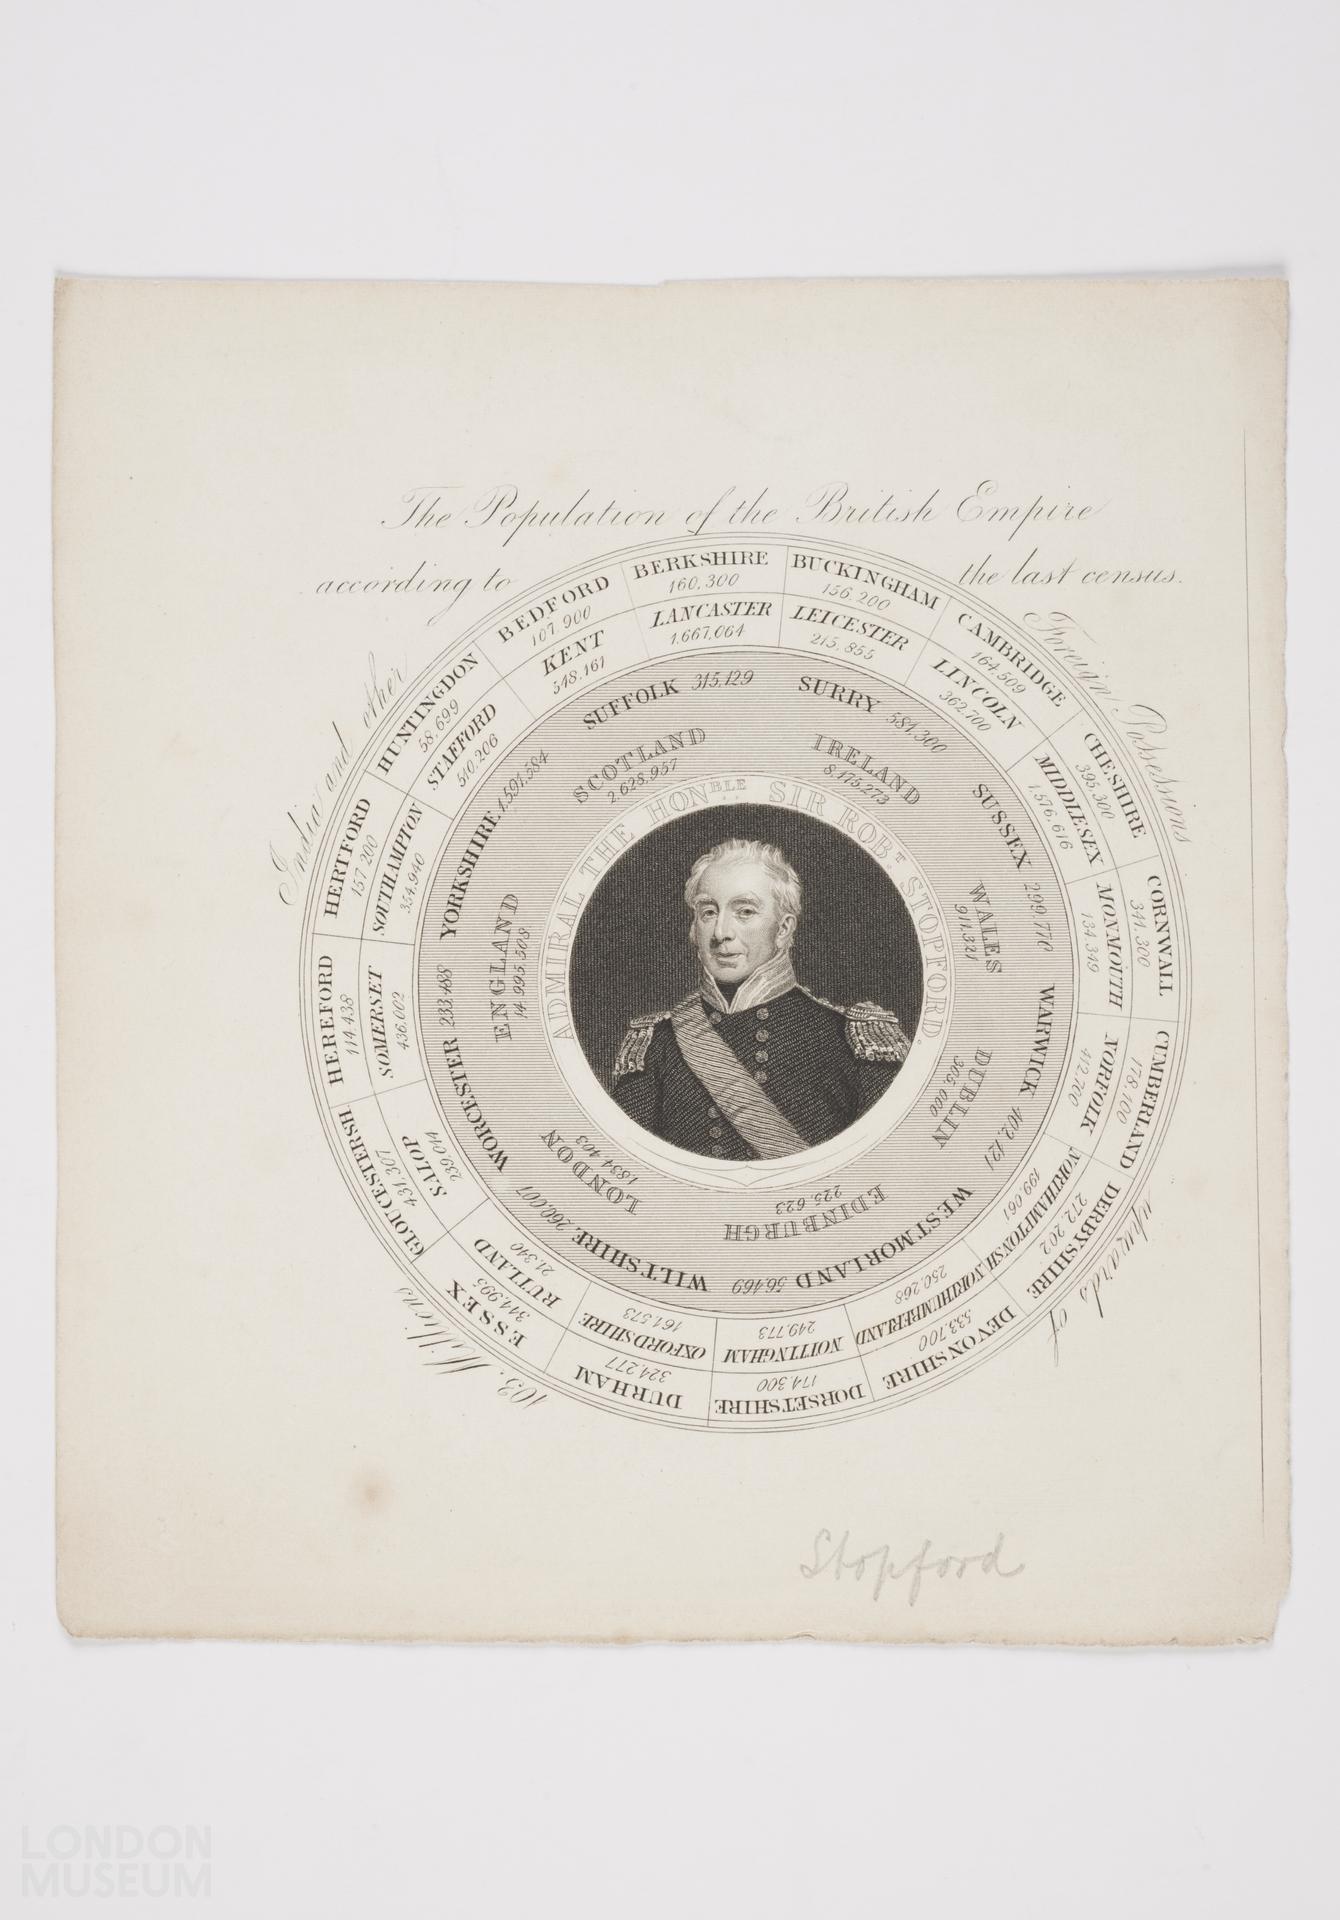 The Population of the British Empire
according to the last census.
India and other Foreign Possessions upwards of 103. Millions
BERKSHIRE
160,300
BUCKINGHAM
156,200
CAMBRIDGE
164,509
CHESHIRE
395,300
CORNWALL
341,300
CUMBERLAND
178,100
DERBYSHIRE
272,202
DEVONSHIRE
533,700
DORSETSHIRE
174,300
DURHAM
324,277
ESSEX
344,995
GLOUCESTERSH
431,307
HEREFORD
114,438
HERTFORD
157,200
HUNTINGDON
58,699
BEDFORD
107,900
KENT
548,161
LANCASTER
1,667,064
LEICESTER
215,855
LINCOLN
362,700
MIDDLESEX
1,576,616
MONMOUTH
134,349
NORFOLK
412,700
NORTHAMPTONSH
199,061
NORTHUMBERLAND
250,268
NOTTINGHAM
249,773
OXFORDSHIRE
161,573
RUTLAND
21,340
SALOP
239,014
SOMERSET
436,002
SOUTHAMPTON
354,940
STAFFORD
510,206
SUFFOLK 315,129
SURRY 581,300
SUSSEX 299,770
WARWICK 402,121
WESTMORLAND 56,469
WILTSHIRE 260,007
WORCESTER 233,488
YORKSHIRE 1,591,584
SCOTLAND
2,628,957
IRELAND
8,175,273
WALES
911,321
DUBLIN
305,000
EDINBURGH
225,623
LONDON
1,834,403
ENGLAND
14,995,508
ADMIRAL THE HONBLE SIR ROBT. STOPFORD.
Stopford
LONDON
MUSEUM